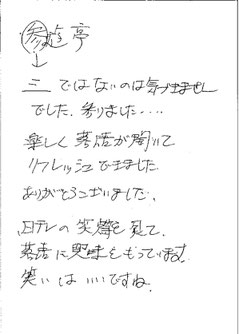 参遊亭
↓
三ではないのは気づきません
でした。参りました・・・・
楽しく落語が聞いて
リフレッシュできました
ありがとうございました。
日テレの笑点を見て、
落語に興味をもっています。
笑いはいいですね。